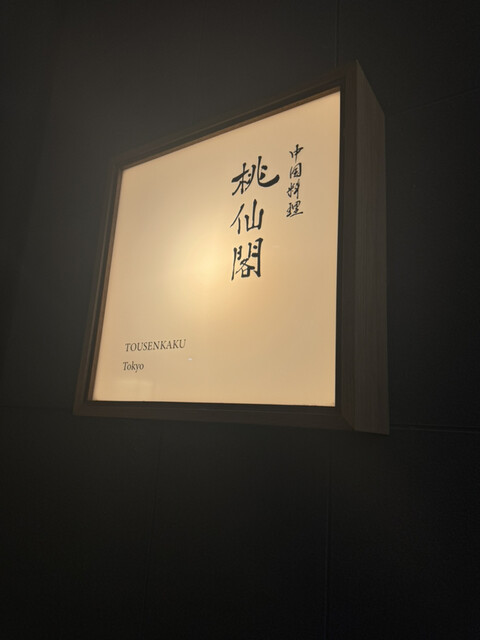 中国料理
桃仙閣
TOUSENKAKU
Tokyo